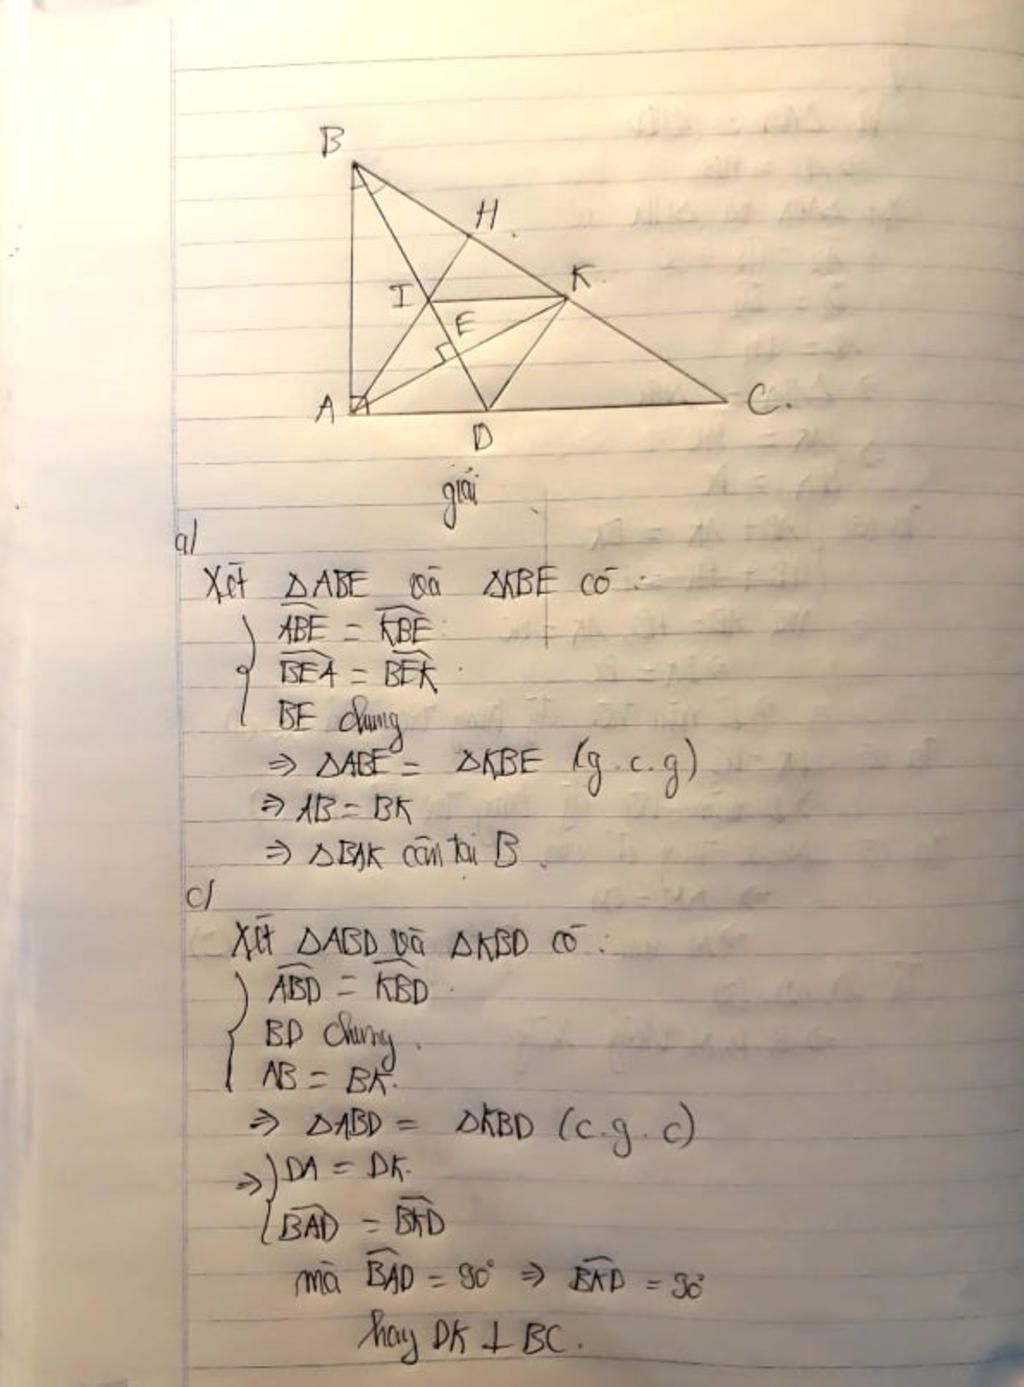 B
H
I
K
E
A
D
C.
giải
a/
Xét ΔABE và ΔKBE có :
{ \widehat{ABE} = \widehat{KBE}
\widehat{BEA} = \widehat{BEK}
BE chung
⇒ ΔABE = ΔKBE (g.c.g)
⇒ AB = BK
⇒ ΔBAK cân tại B
c/
Xét ΔABD và ΔKBD có :
{ \widehat{ABD} = \widehat{KBD}
BD chung.
AB = BK.
⇒ ΔABD = ΔKBD (c.g.c)
⇒ { DA = DK.
\widehat{BAD} = \widehat{BKD}
mà \widehat{BAD} = 90° ⇒ \widehat{BKD} = 90°
hay DK ⊥ BC.